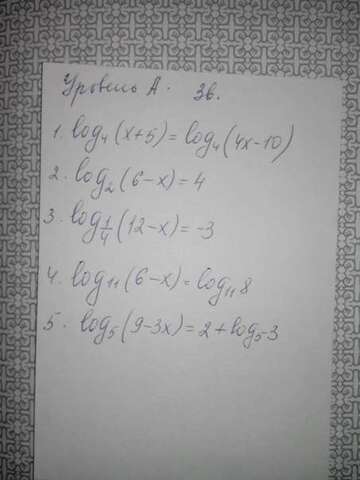 Уровень А. 3в.
1. log₄(x+5)=log₄(4x-10)
2. log₂(6-x)=4
3. log_{1/4}(12-x)=-3
4. log₁₁(6-x)=log₁₁8
5. log₅(9-3x)=2+log₅3